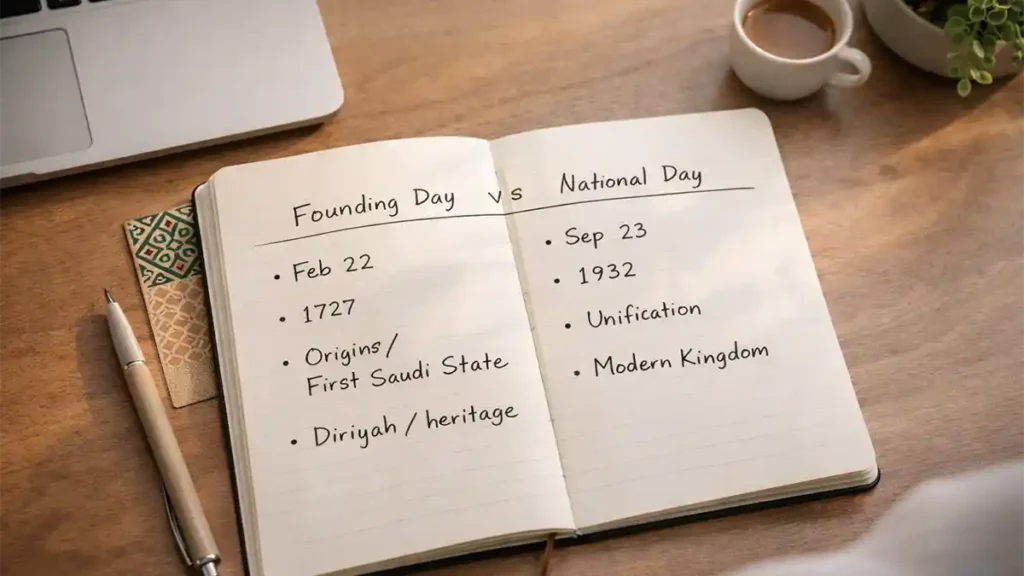 Founding Day vs National Day
• Feb 22
• 1727
• Origins/
First Saudi State
• Diriyah / heritage
• Sep 23
• 1932
• Unification
• Modern Kingdom